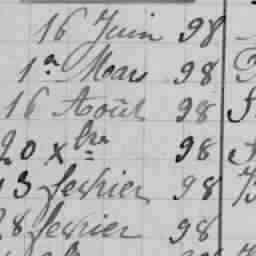 16 Juin 98
1er Mars 98
16 Août 98
20 Xbre 98
13 fevrier 98
28 fevrier 98